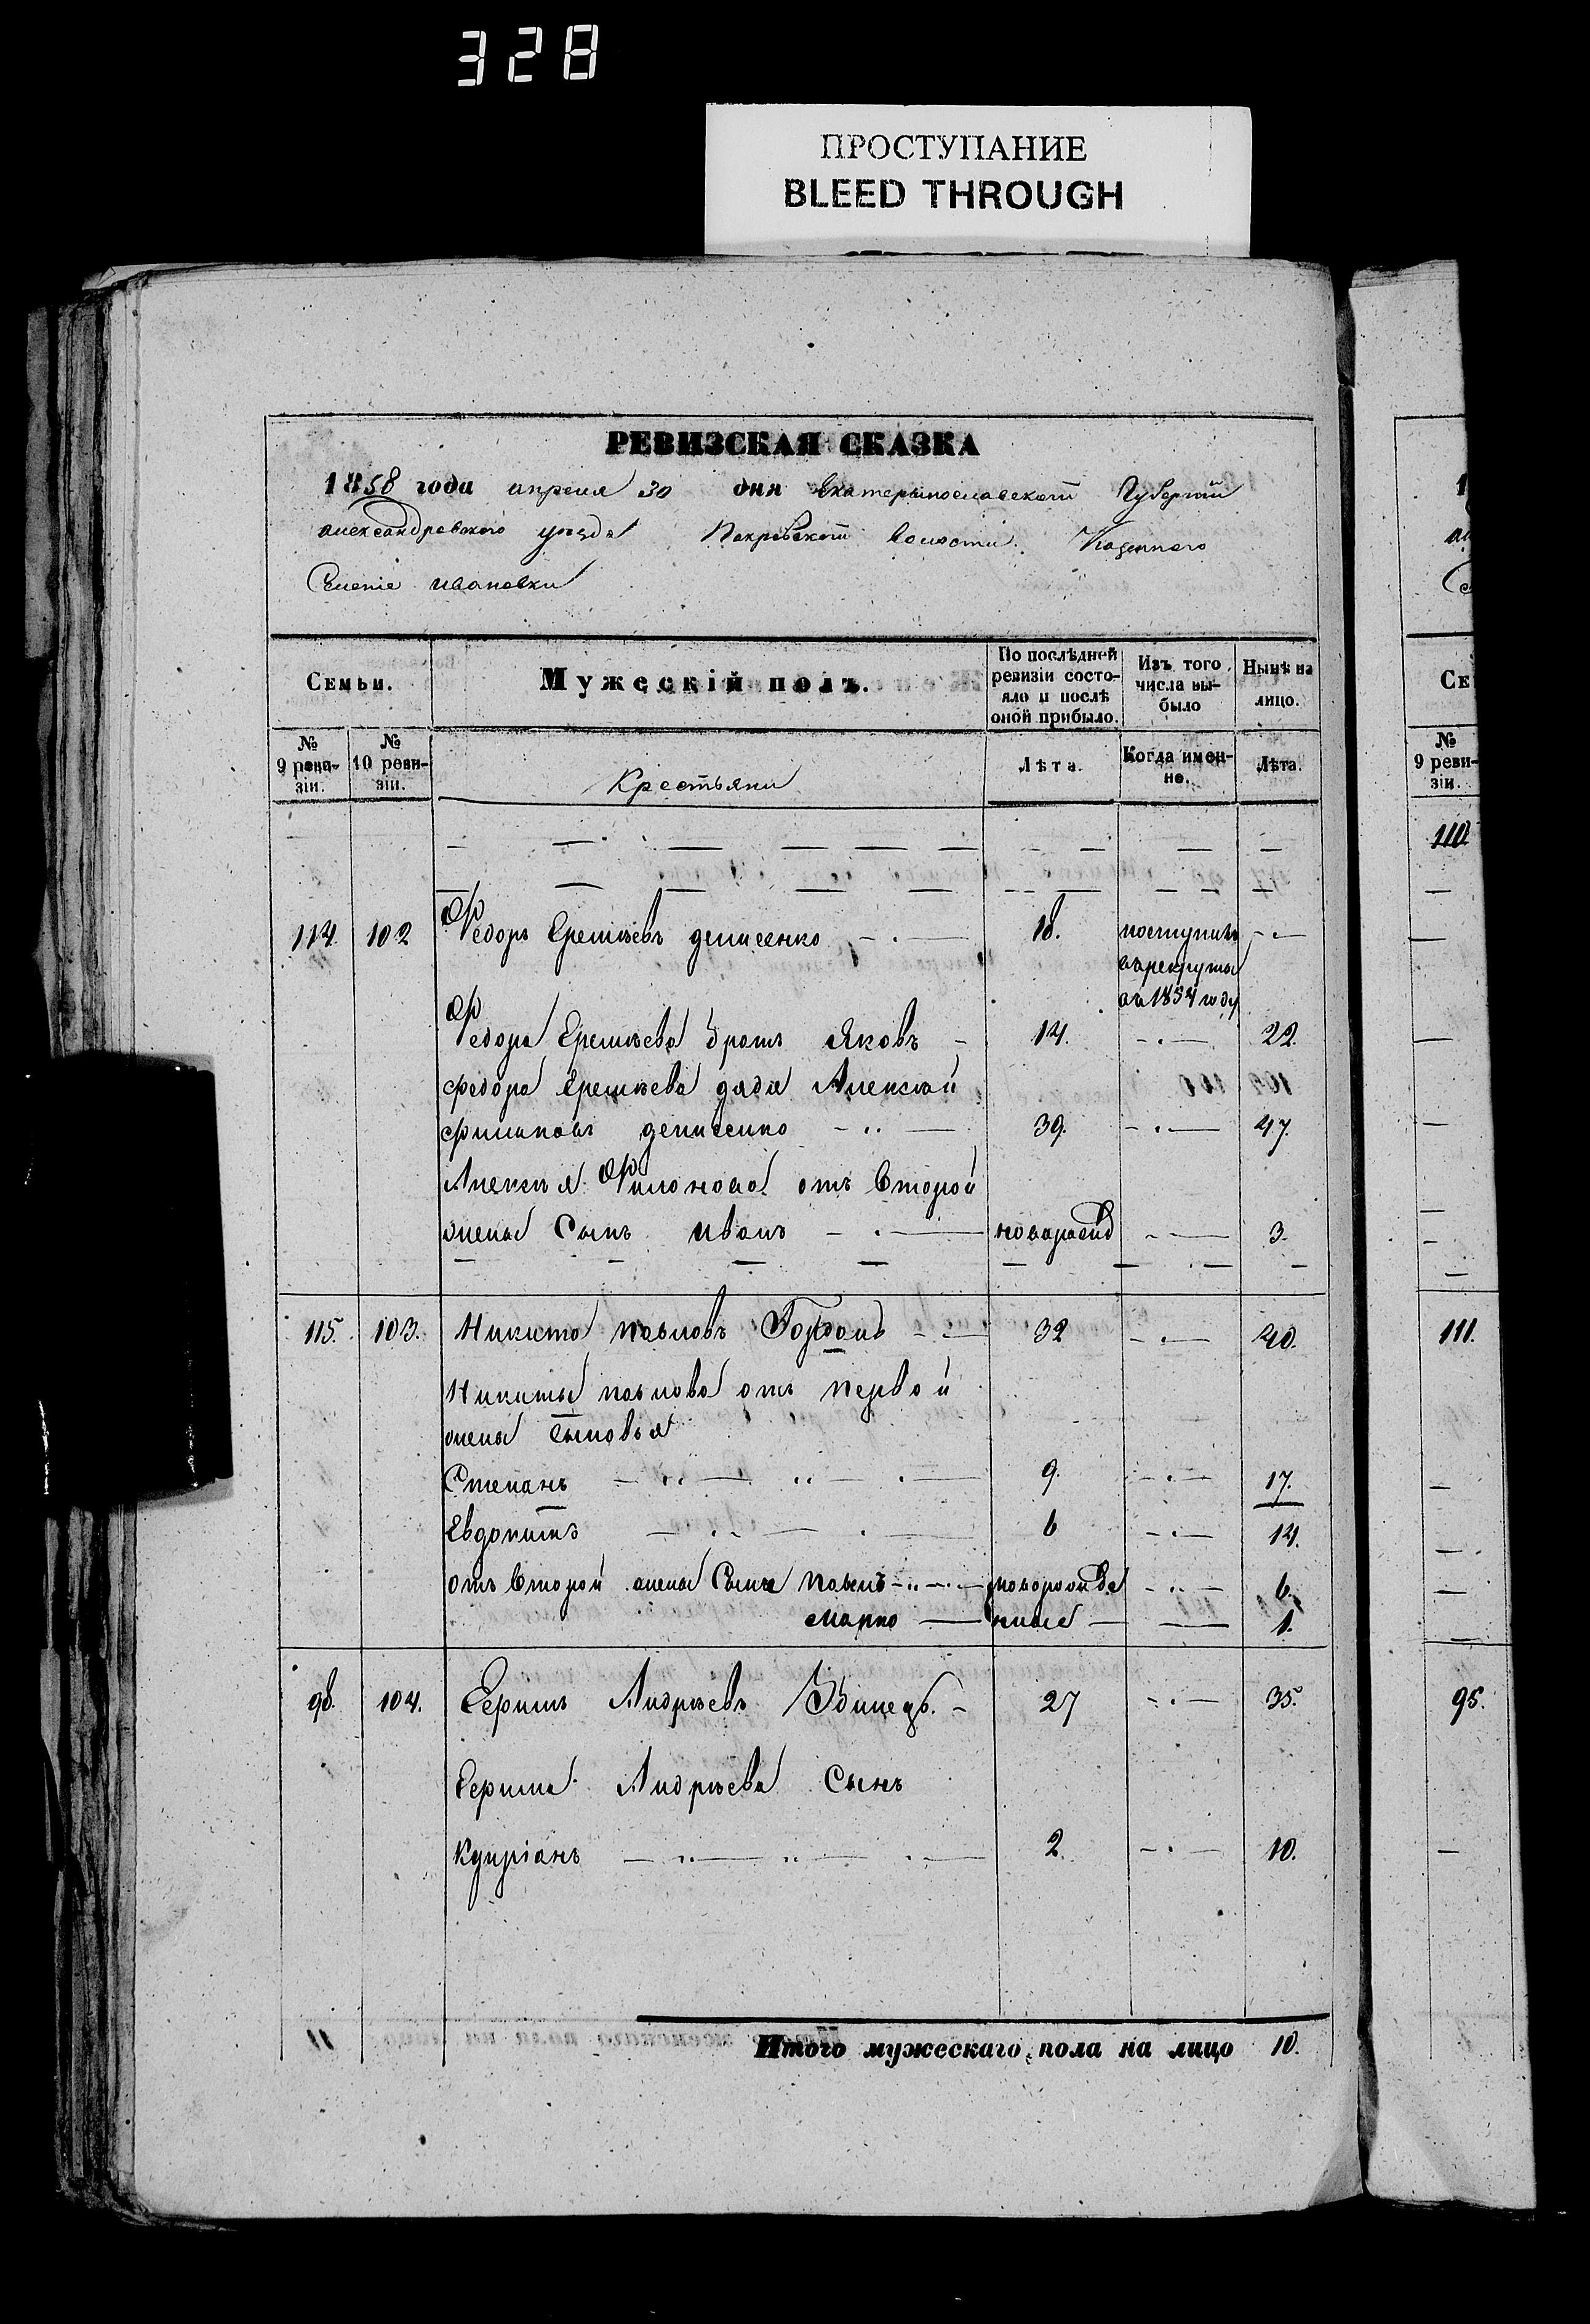 328
ПРОСТУПАНИЕ
BLEED THROUGH
РЕВИЗСКАЯ СКАЗКА
1858 года апреля 30 дня Екатеринославской Губернии
александровского уезда Покровской волости Казенного
Селенiе ивановки
Семьи.
Мужескiй полъ.
По послѣдней ревизiи состояло и послѣ оной прибыло.
Изъ того числа выбыло
Нынѣ на лицо.
№ 9 ревизiи.
№ 10 ревизiи.
Крестьяни
Лѣта.
Когда именно.
Лѣта.
114. 102 Федоръ Еремѣевъ денисенко 18. поступилъ
в рекруты
въ 1854 году
Федора Еремѣева братъ Яковъ 14. 22.
федора Еремѣева дядя Алексѣй
филиповъ денисенко 39. 47.
Алексѣя Филонова отъ второй
жены Сынъ иванъ новорожд 3.
115. 103. Никита павловъ 32 40.
Никиты павлова отъ первой
жены Сыновья
Степанъ 9. 17.
Евдокимъ 6 14.
отъ второй жены Сыны павелъ новорожде 6.
марко ные 1.
98. 104. Андрѣевъ 27 35.
Андрѣева Сынъ
Купрiанъ 2. 10.
Итого мужескаго пола на лицо 10.
СЕ
№
9 ревизiи.
110
111.
95.